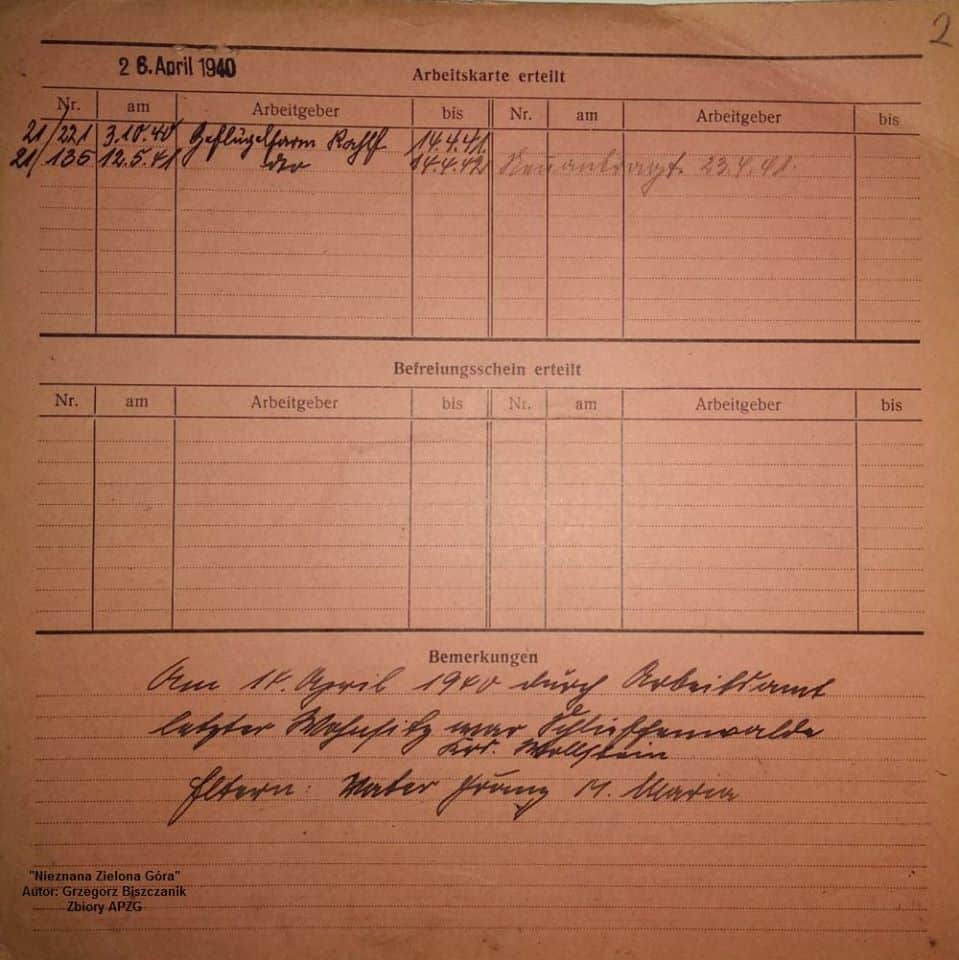 2
26. April 1940
Arbeitskarte erteilt
Nr. am Arbeitgeber bis Nr. am Arbeitgeber bis
21/221 3.10.40 Geflügelfarm 14.4.41
21/135 12.5.41 dto 14.4.42 Neuantragt 23.4.41.
Befreiungsschein erteilt
Nr. am Arbeitgeber bis Nr. am Arbeitgeber bis
Bemerkungen
Am 14. April 1940 durch Arbeitsamt
letzter Wohnsitz war
Krs. Wollstein
Eltern: Vater Franz M. Maria
"Nieznana Zielona Góra"
Autor: Grzegorz Biszczanik
Zbiory APZG